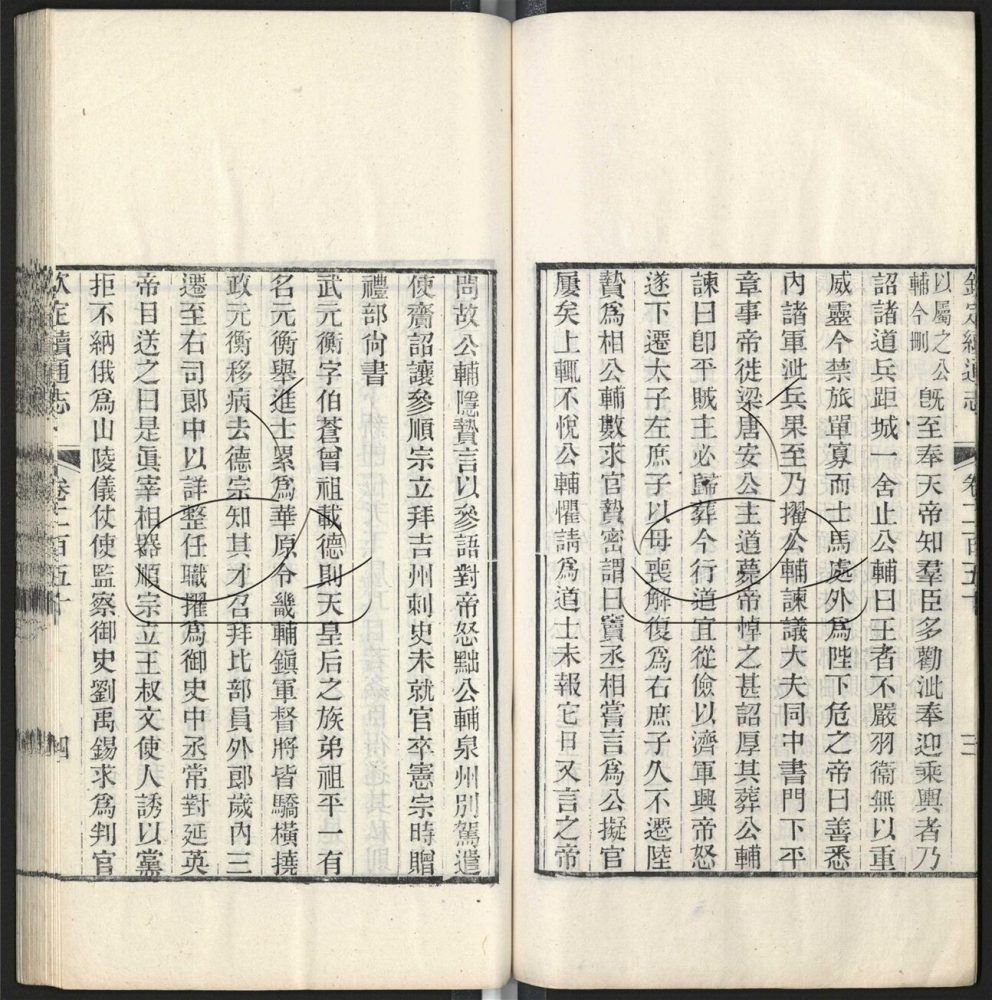 欽定續通志 卷二百五十 三
以屬之公
輔今刪
旣至奉天帝知羣臣多勸泚奉迎乘輿者乃
詔諸道兵距城一舍止公輔曰王者不嚴羽衞無以重
威靈今禁旅單寡而士馬處外爲陛下危之帝曰善悉
內諸軍泚兵果至乃擢公輔諫議大夫同中書門下平
章事帝徙梁唐安公主道薨帝悼之甚詔厚其葬公輔
諫曰卽平賊主必歸葬今行道宜從儉以濟軍興帝怒
遂下遷太子左庶子以母喪解復爲右庶子久不遷陸
贄爲相公輔數求官贄密謂曰竇丞相嘗言爲公擬官
屢矣上輒不悅公輔懼請爲道士未報它日又言之帝
問故公輔隱贄言以參語對帝怒黜公輔泉州別駕遣
使齎詔讓參順宗立拜吉州刺史未就官卒憲宗時贈
禮部尙書
武元衡字伯蒼曾祖載德則天皇后之族弟祖平一有
名元衡舉進士累爲華原令畿輔鎭軍督將皆驕橫撓
政元衡移病去德宗知其才召拜比部員外郞歲內三
遷至右司郞中以詳整任職擢爲御史中丞常對延英
帝目送之曰是眞宰相器順宗立王叔文使人誘以黨
拒不納俄爲山陵儀仗使監察御史劉禹錫求爲判官
欽定續通志 卷二百五十 四